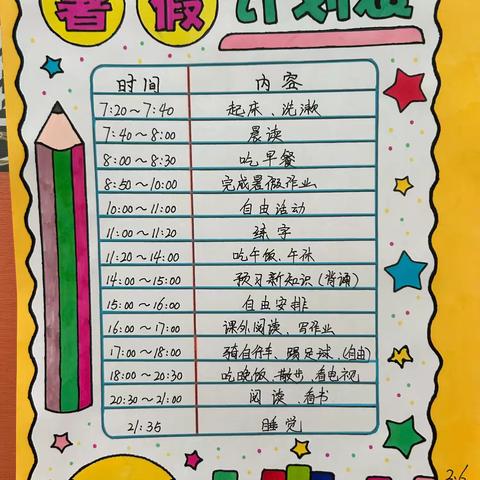 暑假计划表
时间 内容
7:20～7:40 起床、洗漱
7:40～8:00 晨读
8:00～8:30 吃早餐
8:50～10:00 完成暑假作业
10:00～11:00 自由活动
11:00～11:20 练字
11:20～14:00 吃午饭、午休
14:00～15:00 预习新知识(背诵)
15:00～16:00 自由安排
16:00～17:00 课外阅读、写作业
17:00～18:00 骑自行车、踢足球、(自由)
18:00～20:30 吃晚饭、散步、看电视
20:30～21:00 阅读、看书
21:35 睡觉